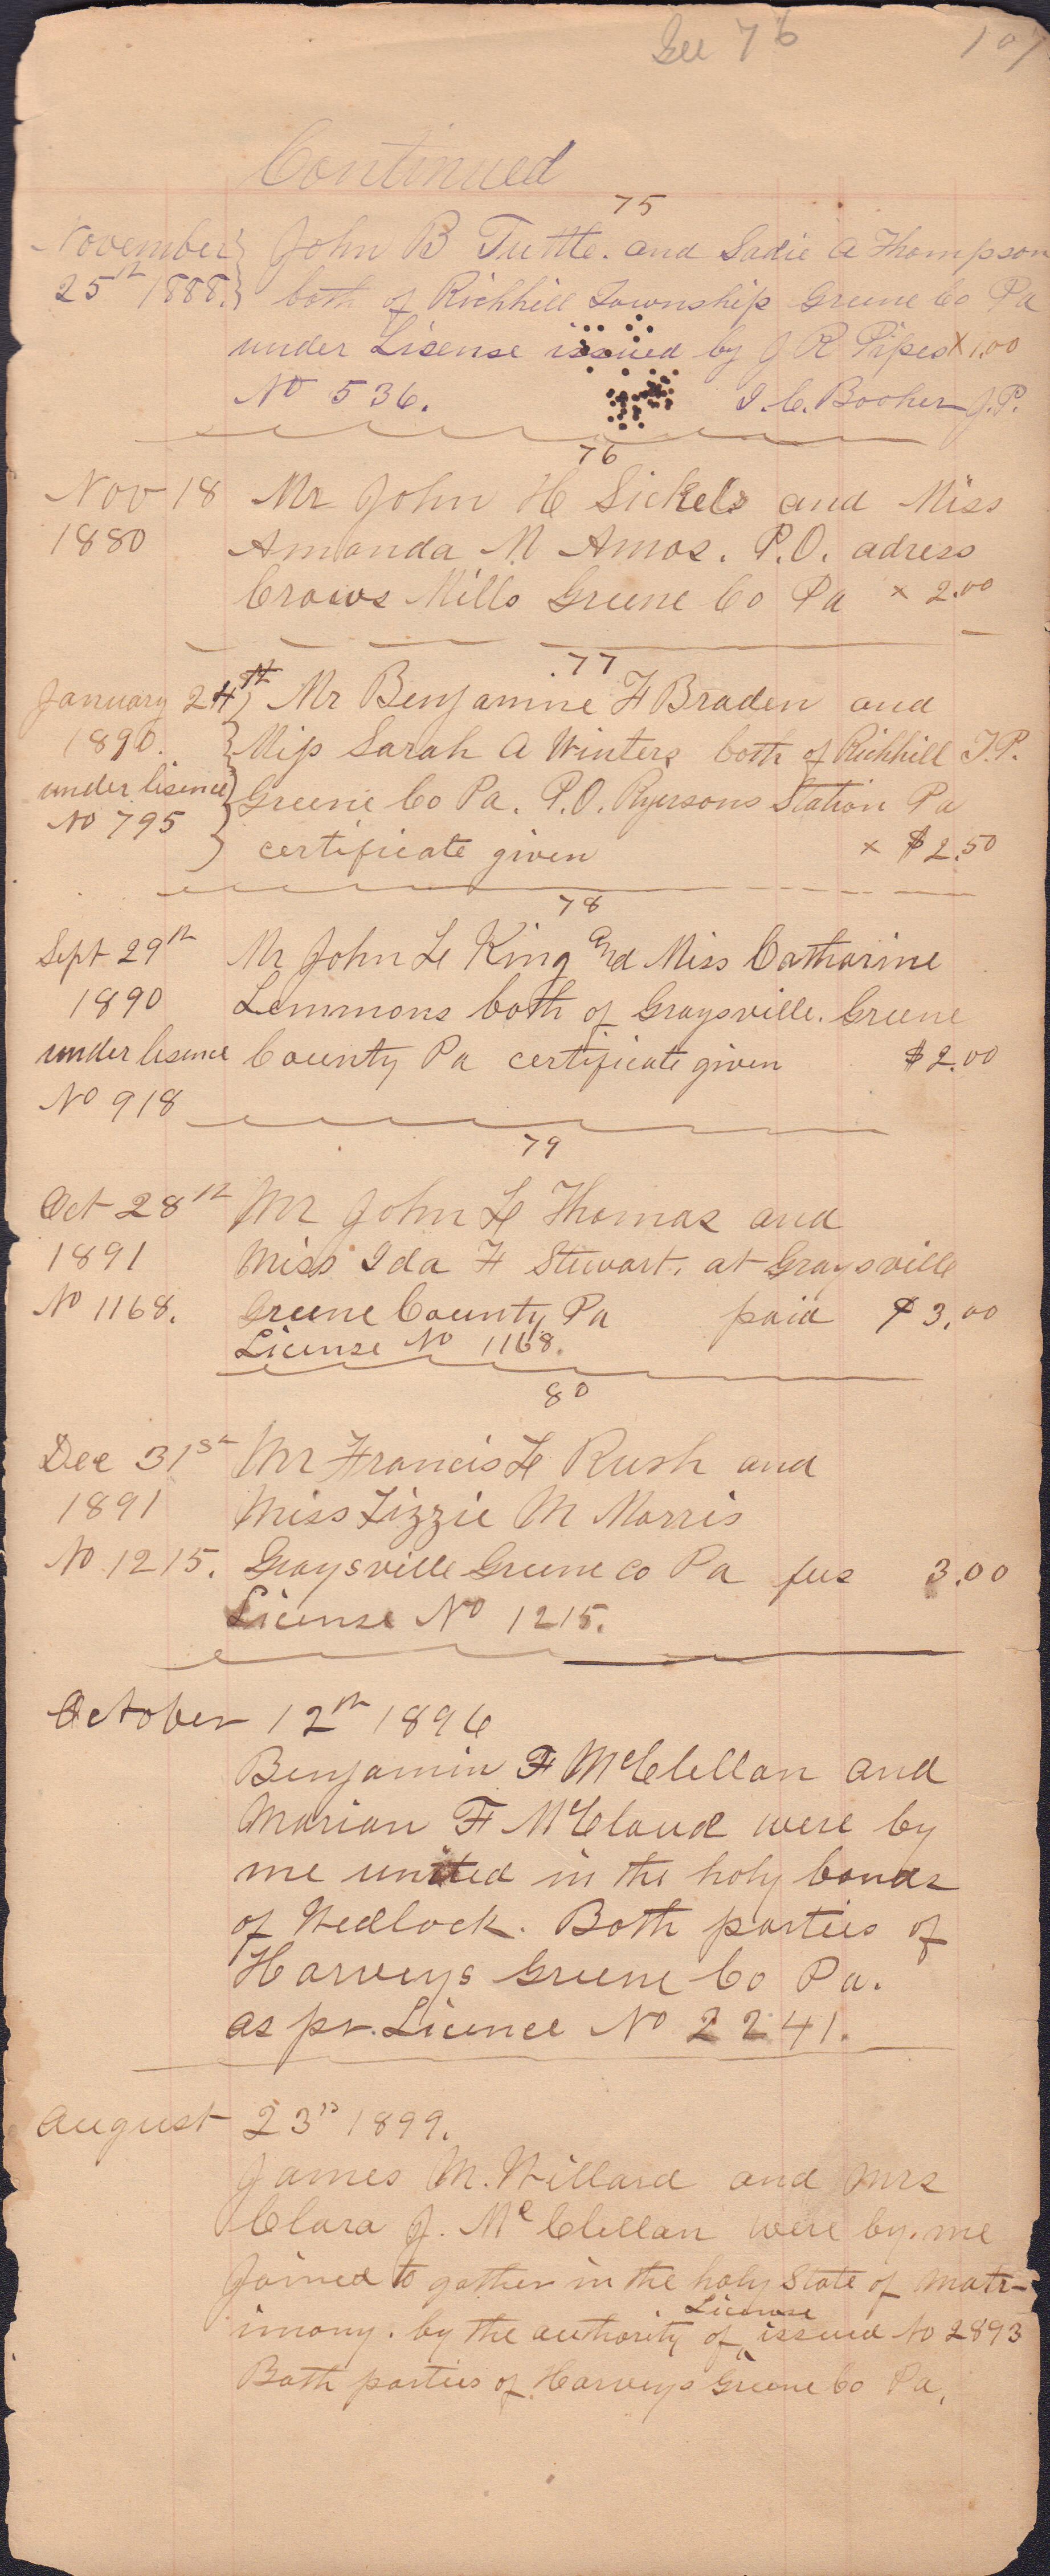 See 76 107
Continued
75
November 25th 1888. John B Tuttle. and Sadie A Thompson
both of Richhill Township Greene Co Pa
under Lisense issued by J R Pipes X 1.00
No 536. I. C. Booher J.P.
76
Nov 18 Mr John H Sickels and Miss
1880 Amanda M Amos. P.O. adress
Crows Mills Greene Co Pa x 2.00
77
January 24th Mr Benjamine F Braden and
1890. Miss Sarah A Winters both of Richhill T.P.
under lisence Greene Co Pa. P.O. Ryersons Station Pa
No 795 certificate given x $2.50
78
Sept 29th Mr John L King and Miss Catharine
1890 Lemmons both of Graysville. Greene
under lisence County Pa certificate given $2.00
No 918
79
Oct 28th Mr John L Thomas and
1891 Miss Ida F Stewart. at Graysville
No 1168. Greene County Pa paid $3.00
License No 1168.
80
Dec 31st Mr Francis L Rush and
1891 Miss Lizzie M Morris
No 1215. Graysville Greene Co Pa fee 3.00
License No 1215.
October 12th 1896
Benjamin F McClellan and
Marian F McCloud were by
me united in the holy bonds
of Wedlock. Both parties of
Harveys Greene Co Pa.
as pr. Licence No 2241.
August 23rd 1899.
James M. Willard and Mrs
Clara J. McClellan were by. me
Joined to gather in the holy State of Matr-
imony. by the authority of License issued No 2893
Both parties of Harveys Greene Co Pa.